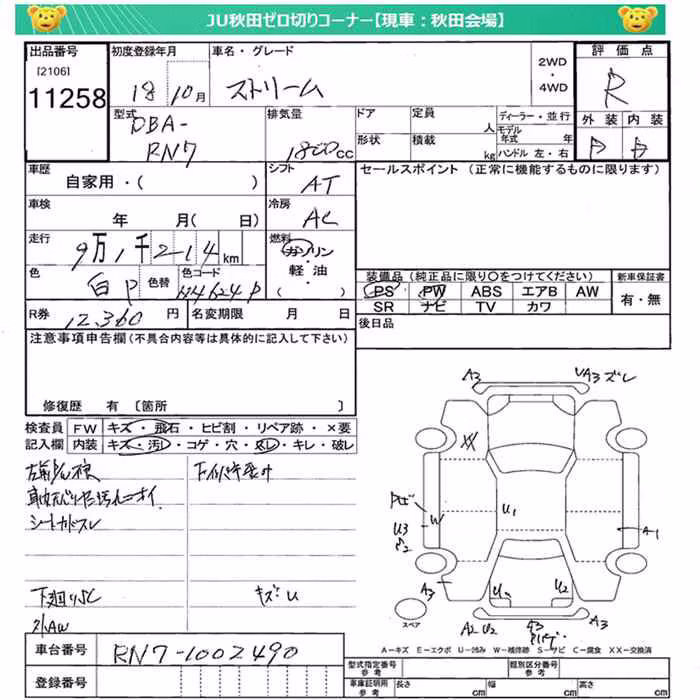 JU秋田ゼロ切りコーナー【現車：秋田会場】
出品番号
[2106]
11258
初度登録年月
18 10月
車名・グレード
ストリーム
2WD
・
4WD
評価点
R
外装 内装
D D
型式
DBA-
RN7
排気量
1800cc
ドア
定員
人
ディーラー・並行
モデル年式 年
形状
積載
kg
ハンドル 左・右
車歴
自家用・( )
シフト
AT
セールスポイント (正常に機能するものに限ります)
車検
年 月( 日)
冷房
AC
走行
9万1千214km
燃料
ガソリン
・
軽油
・
( )
色
白P
色替
色コード
NH624P
装備品 (純正品に限り○をつけてください)
PS PW ABS エアB AW
SR ナビ TV カワ
新車保証書
有・無
R券
12,360円
名変期限 月 日
後日品
注意事項申告欄(不具合内容等は具体的に記入して下さい)
修復歴 有 [箇所 ]
検査員記入欄
FW キズ・飛石・ヒビ割・リペア跡・×要
内装 キズ・汚レ・コゲ・穴・スレ・キレ・破レ
シートカドスレ
下廻りSC
キズU
社外AW
A3
A3 ズレ
XX
U1
W
U3
A1
A3
A3
U2
A2 U2
A3
スペア
A－キズ E－エクボ U－凹み W－補修跡 S－サビ C－腐食 XX－交換済
車台番号
RN7-1002490
登録番号
型式指定番号
参考
類別区分番号
参考
車庫証明用
参考
長さ cm
幅 cm
高さ cm